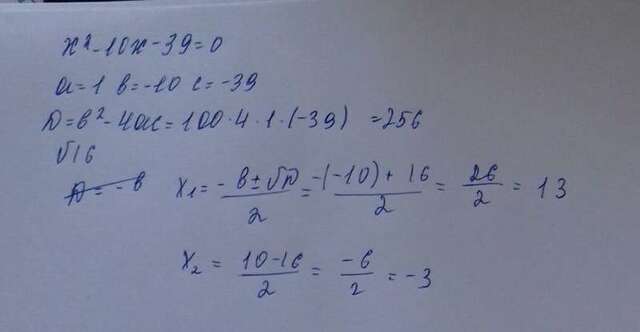 x²-10x-39=0
a=1 в=-10 c=-39
D=в²-4ac=100·4·1·(-39) =256
√16
D=-в x₁=-в±√D/2=-(-10)+16/2=26/2=13
x₂=10-16/2=-6/2=-3